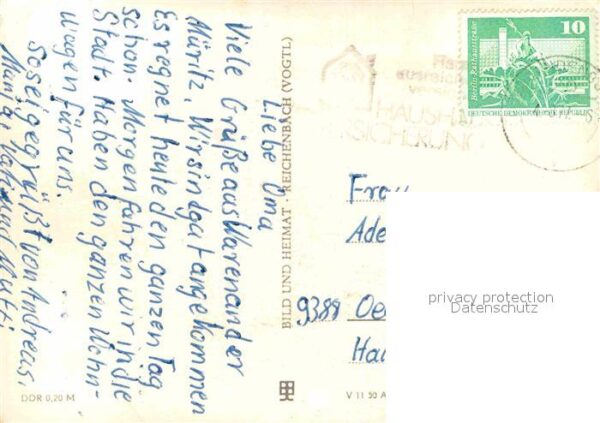 Liebe Oma
Viele Grüße aus Waren an der
Müritz. Wir sind gut angekommen
Es regnet heute den ganzen Tag
schon. Morgen fahren wir in die
Stadt. Haben den ganzen Wohn-
wagen für uns.
So sei gegrüßt von Andreas,
Vati und Mutti
BILD UND HEIMAT · REICHENBACH (VOGTL)
DDR 0,20 M
V 11 50 A
10
Berlin, Rathausstraße
DEUTSCHE DEMOKRATISCHE REPUBLIK
HAUSHA
Frau
Ade
9388 Oe
Hau
privacy protection
Datenschutz